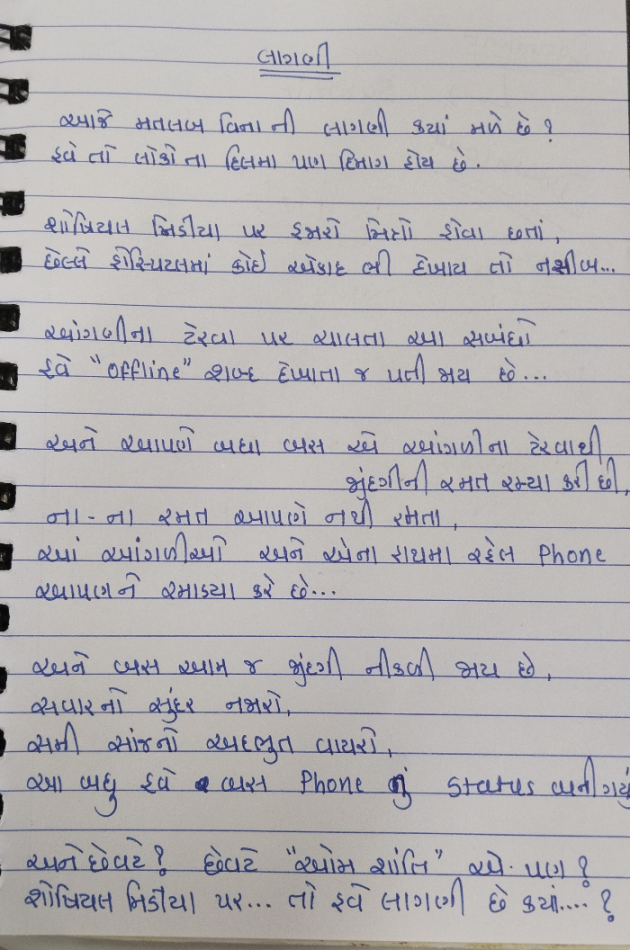 લાગણી
આજે મતલબ વિના ની લાગણી કયાં મળે છે?
હવે તો લોકો ના દિલમા પણ દિમાગ હોય છે.
શોષિયલ મિડીયા પર હજારો મિત્રો હોવા છતાં,
છેલ્લે હોસ્પિટલમાં કોઈ એકાદ બી દેખાય તો નસીબ...
આંગળીના ટેરવા પર ચાલતા આ સબંધો
હવે "Offline" શબ્દ દેખાતા જ પતી જાય છે...
અને આપણે બધા બસ એ આંગળીના ટેરવાથી
જીંદગીની રમત રમ્યા કરી છી,
ના - ના રમત આપણે નથી રમતા,
આં આંગળીઓ અને એના હાથમા રહેલ Phone
આપણને રમાડ્યા કરે છે...
અને બસ આમ જ જીંદગી નીકળી જાય છે,
સવારનો સુંદર નજારો,
સમી સાંજનો અદભુત વાયરો,
આ બધુ હવે બસ Phone નું Status બની ગયું
અને છેવટે? છેવટે "ઓમ શાંતિ" એ પણ?
શોષિયલ મિડીયા પર... તો હવે લાગણી છે કયાં....?